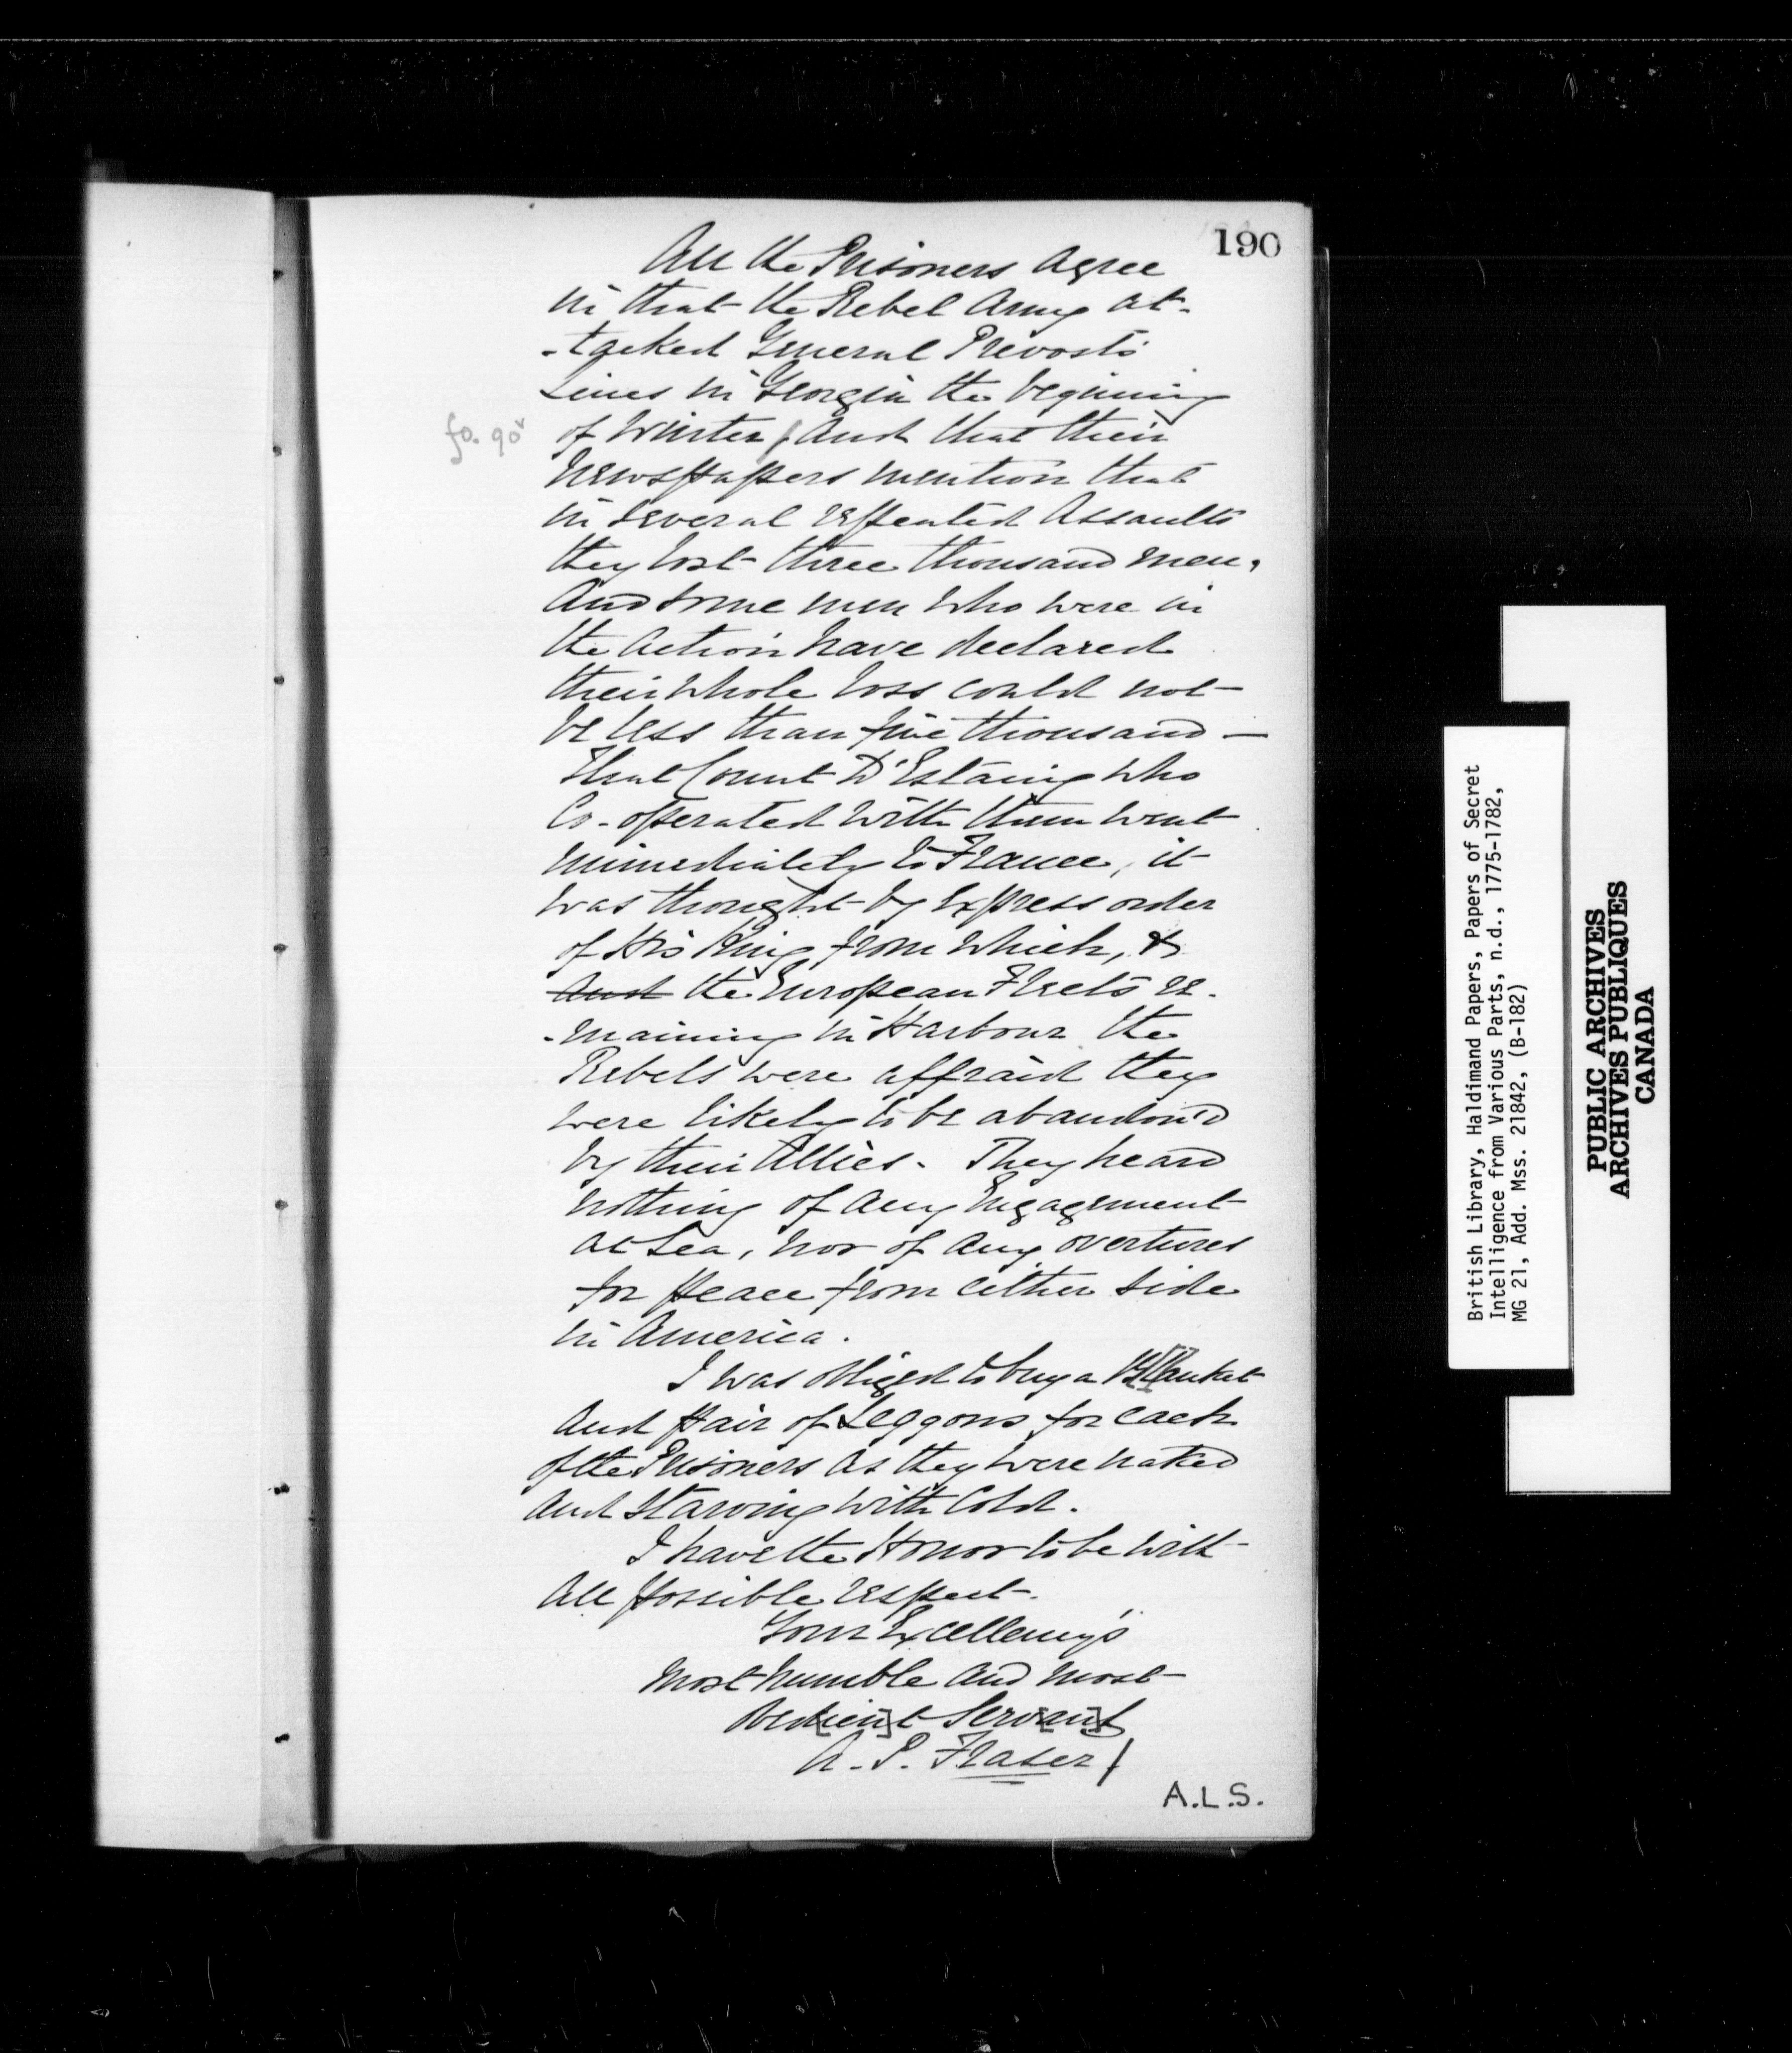 190
All the Prisoners Agree
in that the Rebel Army at-
-tacked General Prevost's
Lines in Georgia the beginning
fo. 90v
of Winter / And that their
Newspapers mention that
in several repeated Assaults
they lost three thousand men,
And some men who were in
the Action have declared
their whole loss could not
be less than five thousand —
That Count D'Estaing who
Co-operated with them went
immediately to France, it
was thought by Express order
of His King from which, &
And the European Fleets re-
-maining in Harbour the
Rebels were affraid they
were likely to be abandon'd
by their Allies. They heard
nothing of any Engagement
at Sea, nor of any overtures
for peace from either side
in America.
I was obliged to buy a Blanket
And pair of Leggons for each
of the Prisoners As they were naked
And Starving with Cold.
I have the Honor to be with
All possible respect.
Your Excellency's
Most humble and most
Obed[ien]t Serv[an]t
A. P. Fraser /
A.L.S.
British Library, Haldimand Papers, Papers of Secret
Intelligence from Various Parts, n.d., 1775-1782,
MG 21, Add. Mss. 21842, (B-182)
PUBLIC ARCHIVES
ARCHIVES PUBLIQUES
CANADA